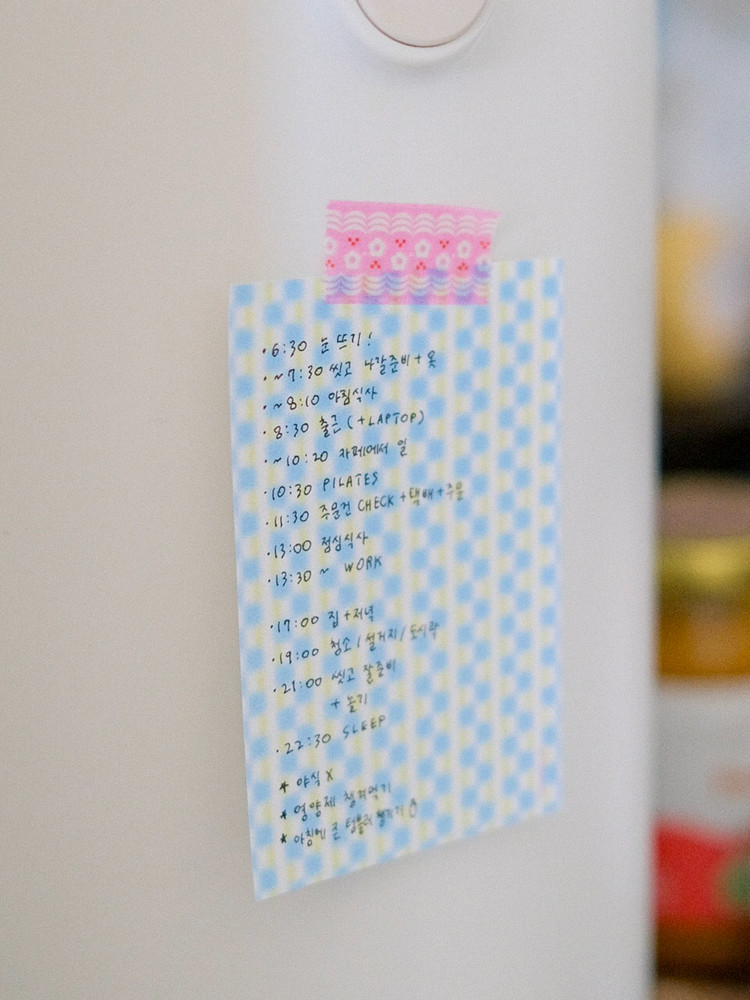 ·6:30 눈 뜨기!
·~7:30 씻고 나갈준비 + 옷
·~8:10 아침식사
·8:30 출근 (+LAPTOP)
·~10:20 카페에서 일
·10:30 PILATES
·11:30 주문건 CHECK + 택배 + 주문
·13:00 점심식사
·13:30 ~ WORK
·17:00 집+저녁
·19:00 청소/설거지/도시락
·21:00 씻고 잘준비
+ 놀기
·22:30 SLEEP
* 야식 X
* 영양제 챙겨먹기
* 아침에 큰 텀블러 챙기기